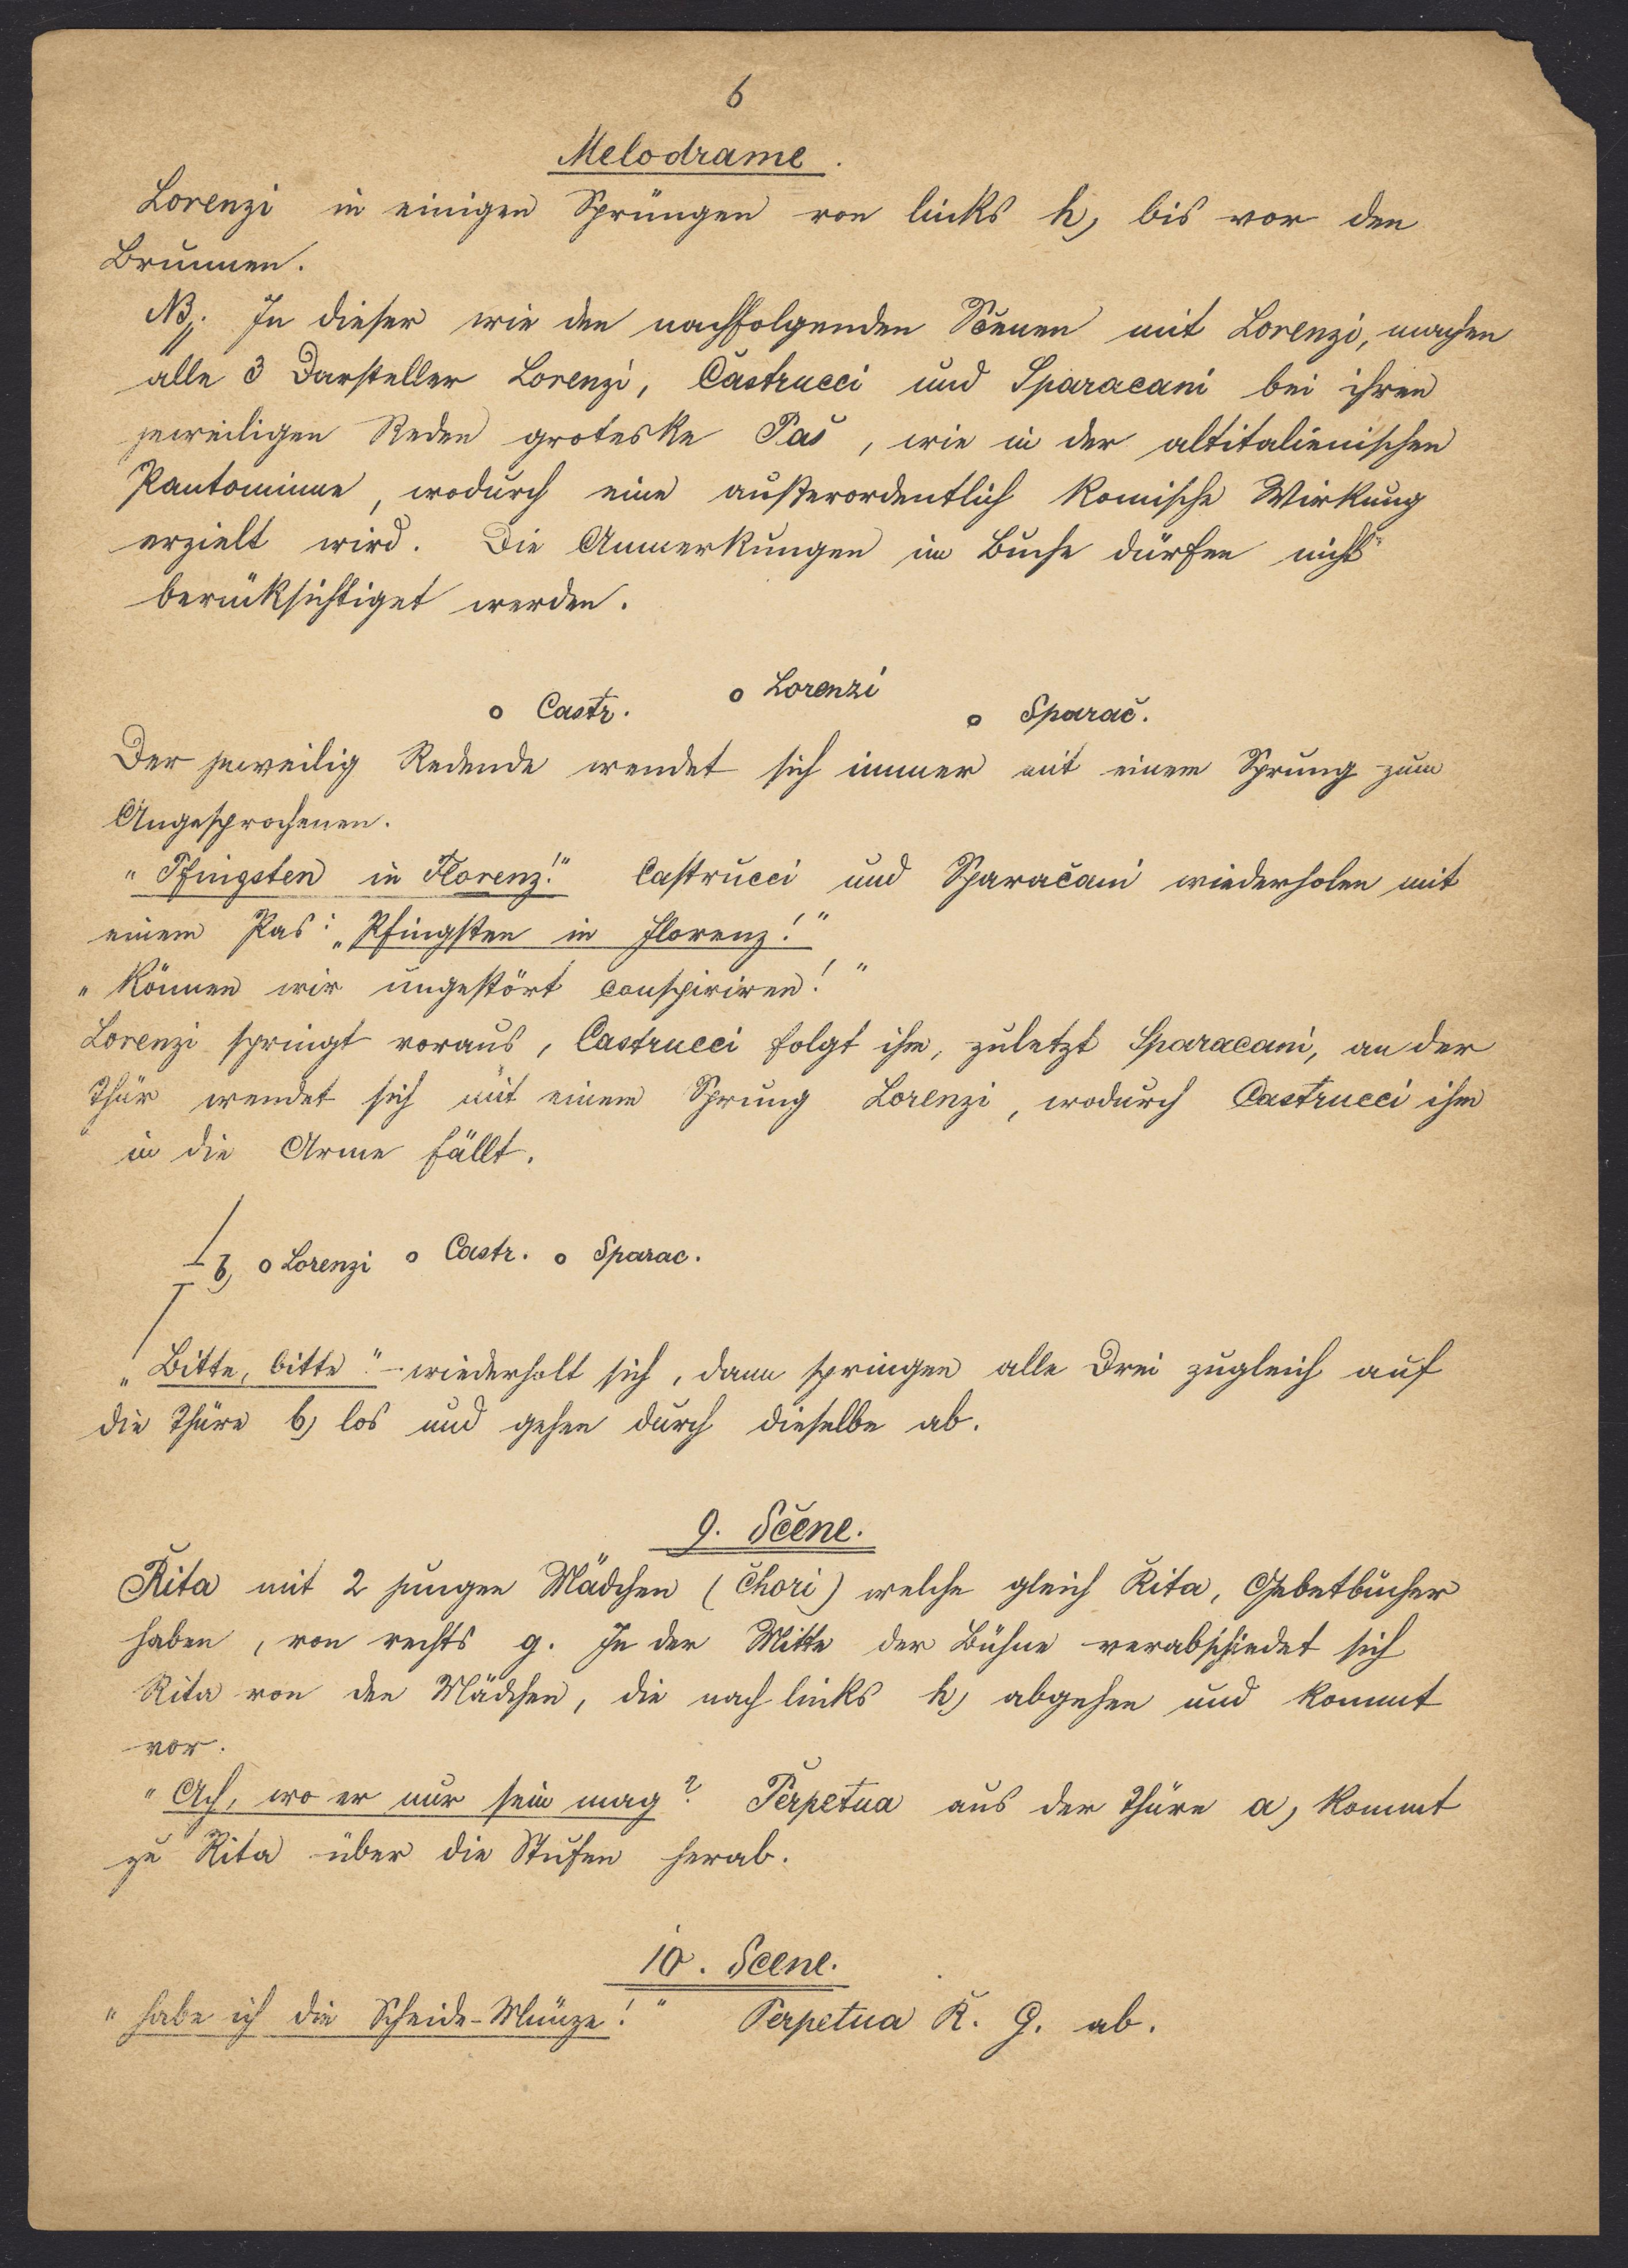 6
Melodrame.
Lorenzi in einigen Sprüngen von links h, bis vor den
Brunnen.
NB. In dieser wie den nachfolgenden Scenen mit Lorenzi, machen
alle 3 Darsteller Lorenzi, Castrucci und Sparacani bei ihren
jeweiligen Reden groteske Pas, wie in der altitalienischen
Pantomimme, wodurch eine außerordentlich komische Wirkung
erzielt wird. Die Anmerkungen im Buche dürfen nicht
berücksichtiget werden.
o Castr. o Lorenzi o Sparac.
Der jeweilig Redende wendet sich immer mit einem Sprung zum
Angesprochenen.
"Pfingsten in Florenz!" Castrucci und Sparacani wiederholen mit
einem Pas: „Pfingsten in Florenz!"
"Können wir ungestört conspiriren!"
Lorenzi springt voraus, Castrucci folgt ihm, zuletzt Sparacani, an der
Thür wendet sich mit einem Sprung Lorenzi, wodurch Castrucci ihm
in die Arme fällt.
b, o Lorenzi o Castr. o Sparac.
„Bitte, bitte" - wiederholt sich, dann springen alle Drei zugleich auf
die Thüre b, los und gehen durch dieselbe ab.
9. Scene.
Rita mit 2 jungen Mädchen (Chori) welche gleich Rita, Gebetbücher
haben, von rechts g. In der Mitte der Bühne verabschiedet sich
Rita von den Mädchen, die nach links h, abgehen und kommt
vor.
"Ach, wo er nur sein mag? Perpetua aus der Thüre a, kommt
zu Rita über die Stufen herab.
10. Scene.
"habe ich die Scheide-Münze!" Perpetua R. G. ab.